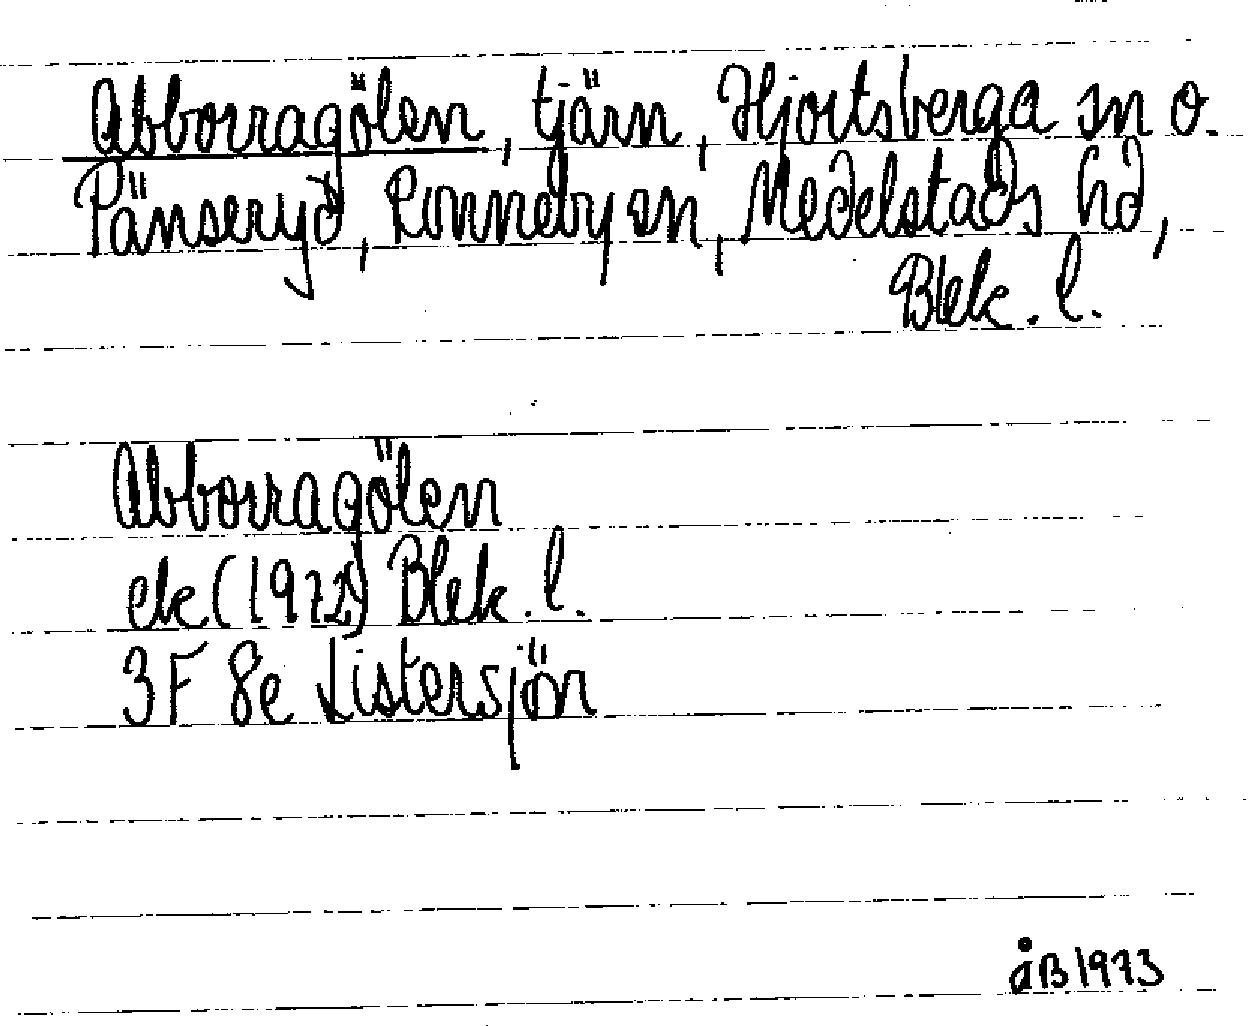 Abborragölen, tjärn, Hjortsberga sn o.
Pänseryd, Ronneby sn, Medelstads hd,
Blek. l.
Abborragölen
ek (1972) Blek. l.
3F 8e Listersjön
åB 1973